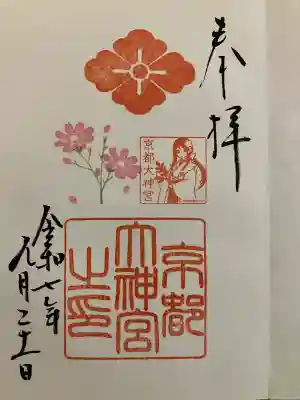 奉拝
京都大神宮
京都
大神宮
之印
令和七年
九月二十一日